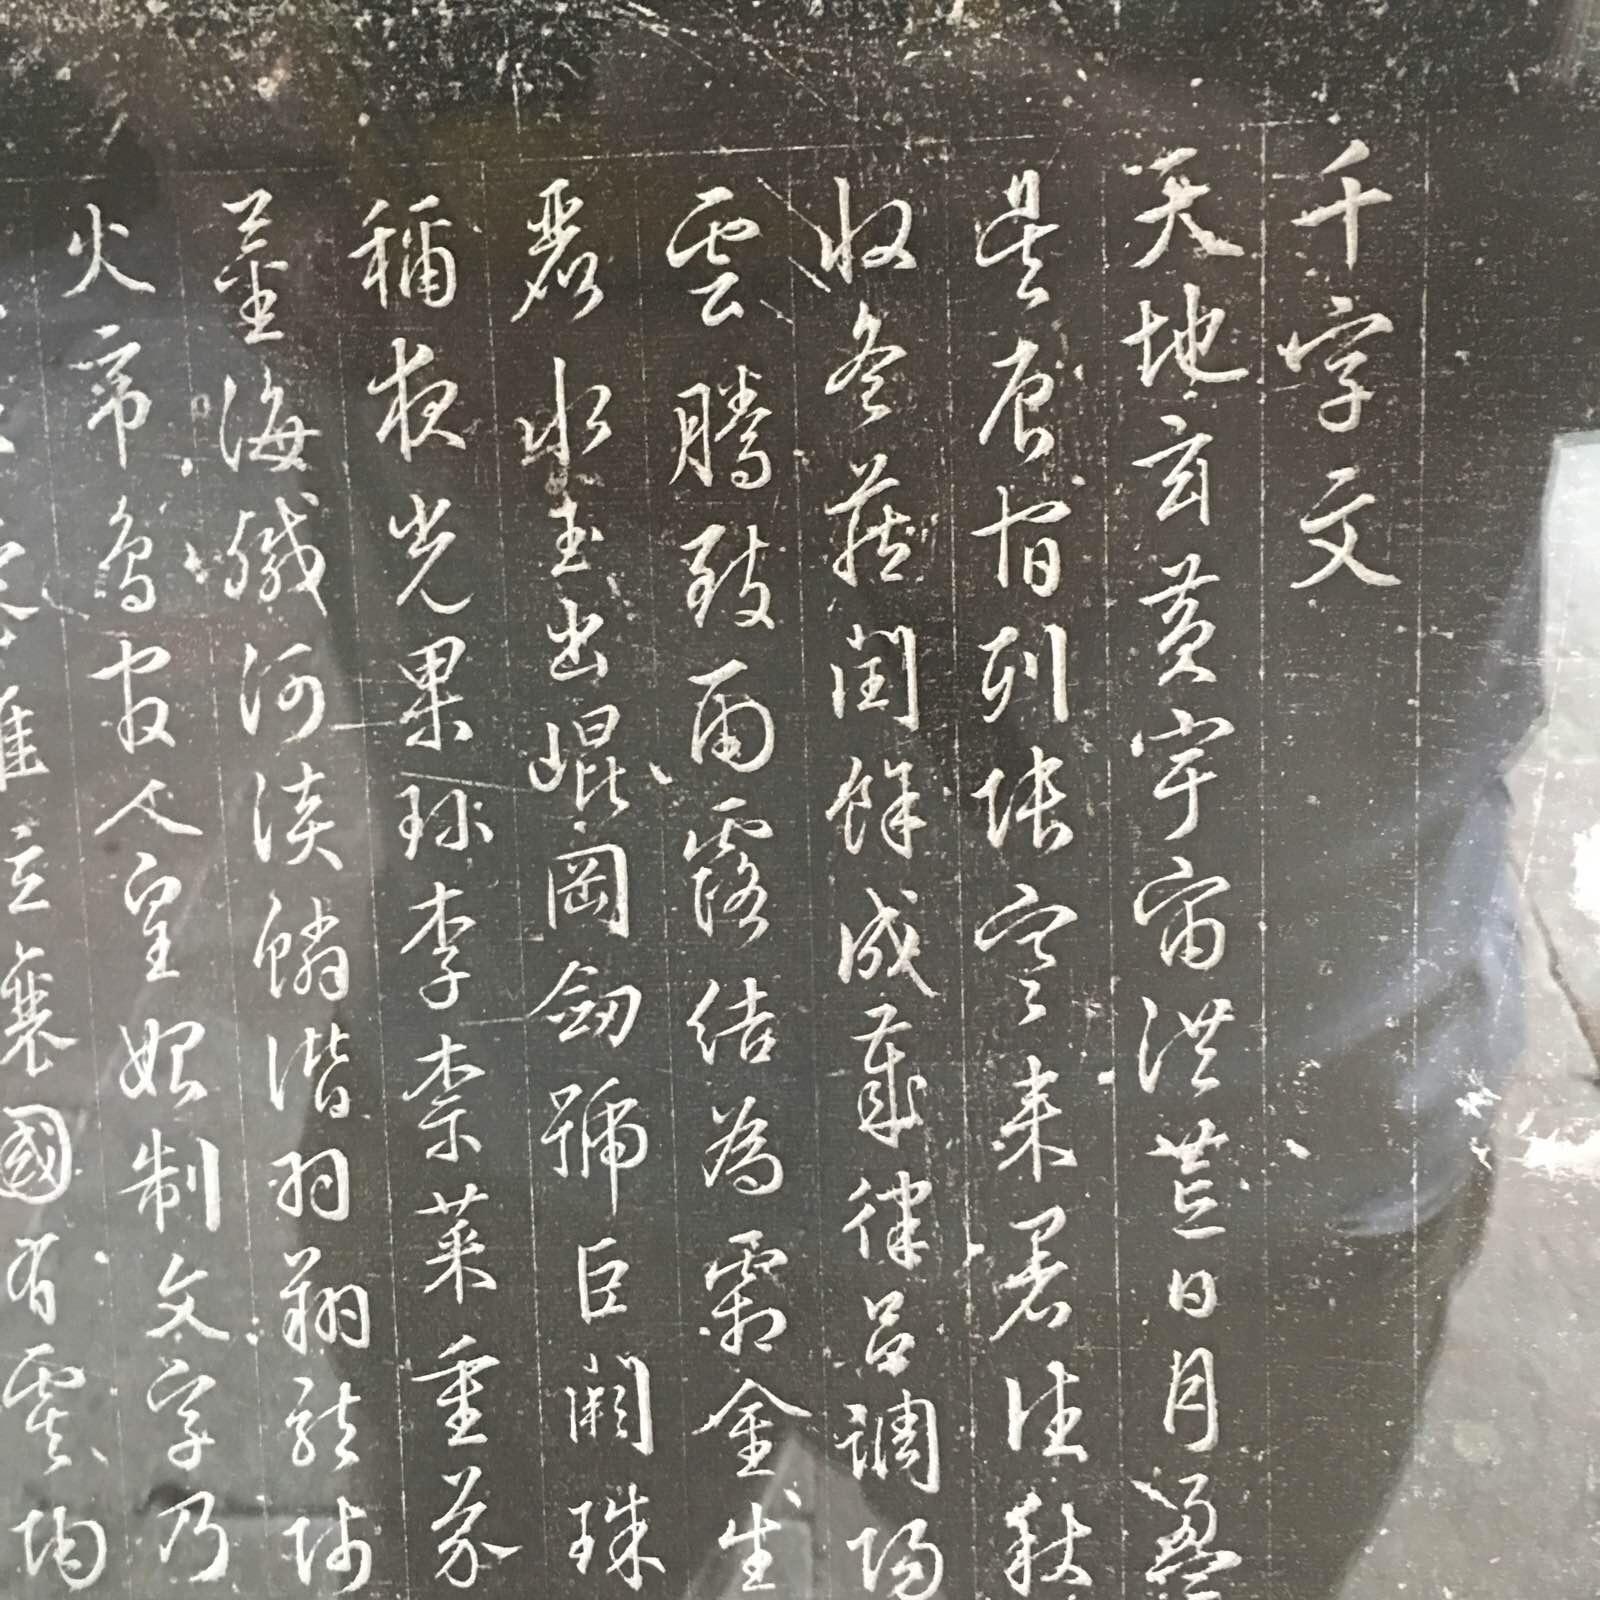 千字文
天地玄黃宇宙洪荒日月盈
昃辰宿列張寒来暑往秋
收冬藏閏餘成歲律呂調陽
雲騰致雨露結為霜金生
麗水玉出崐岡劒號巨闕珠
稱夜光果珍李柰菜重芥
薑海鹹河淡鱗潛羽翔龍師
火帝鳥官人皇始制文字乃
裳推位讓國有虞陶